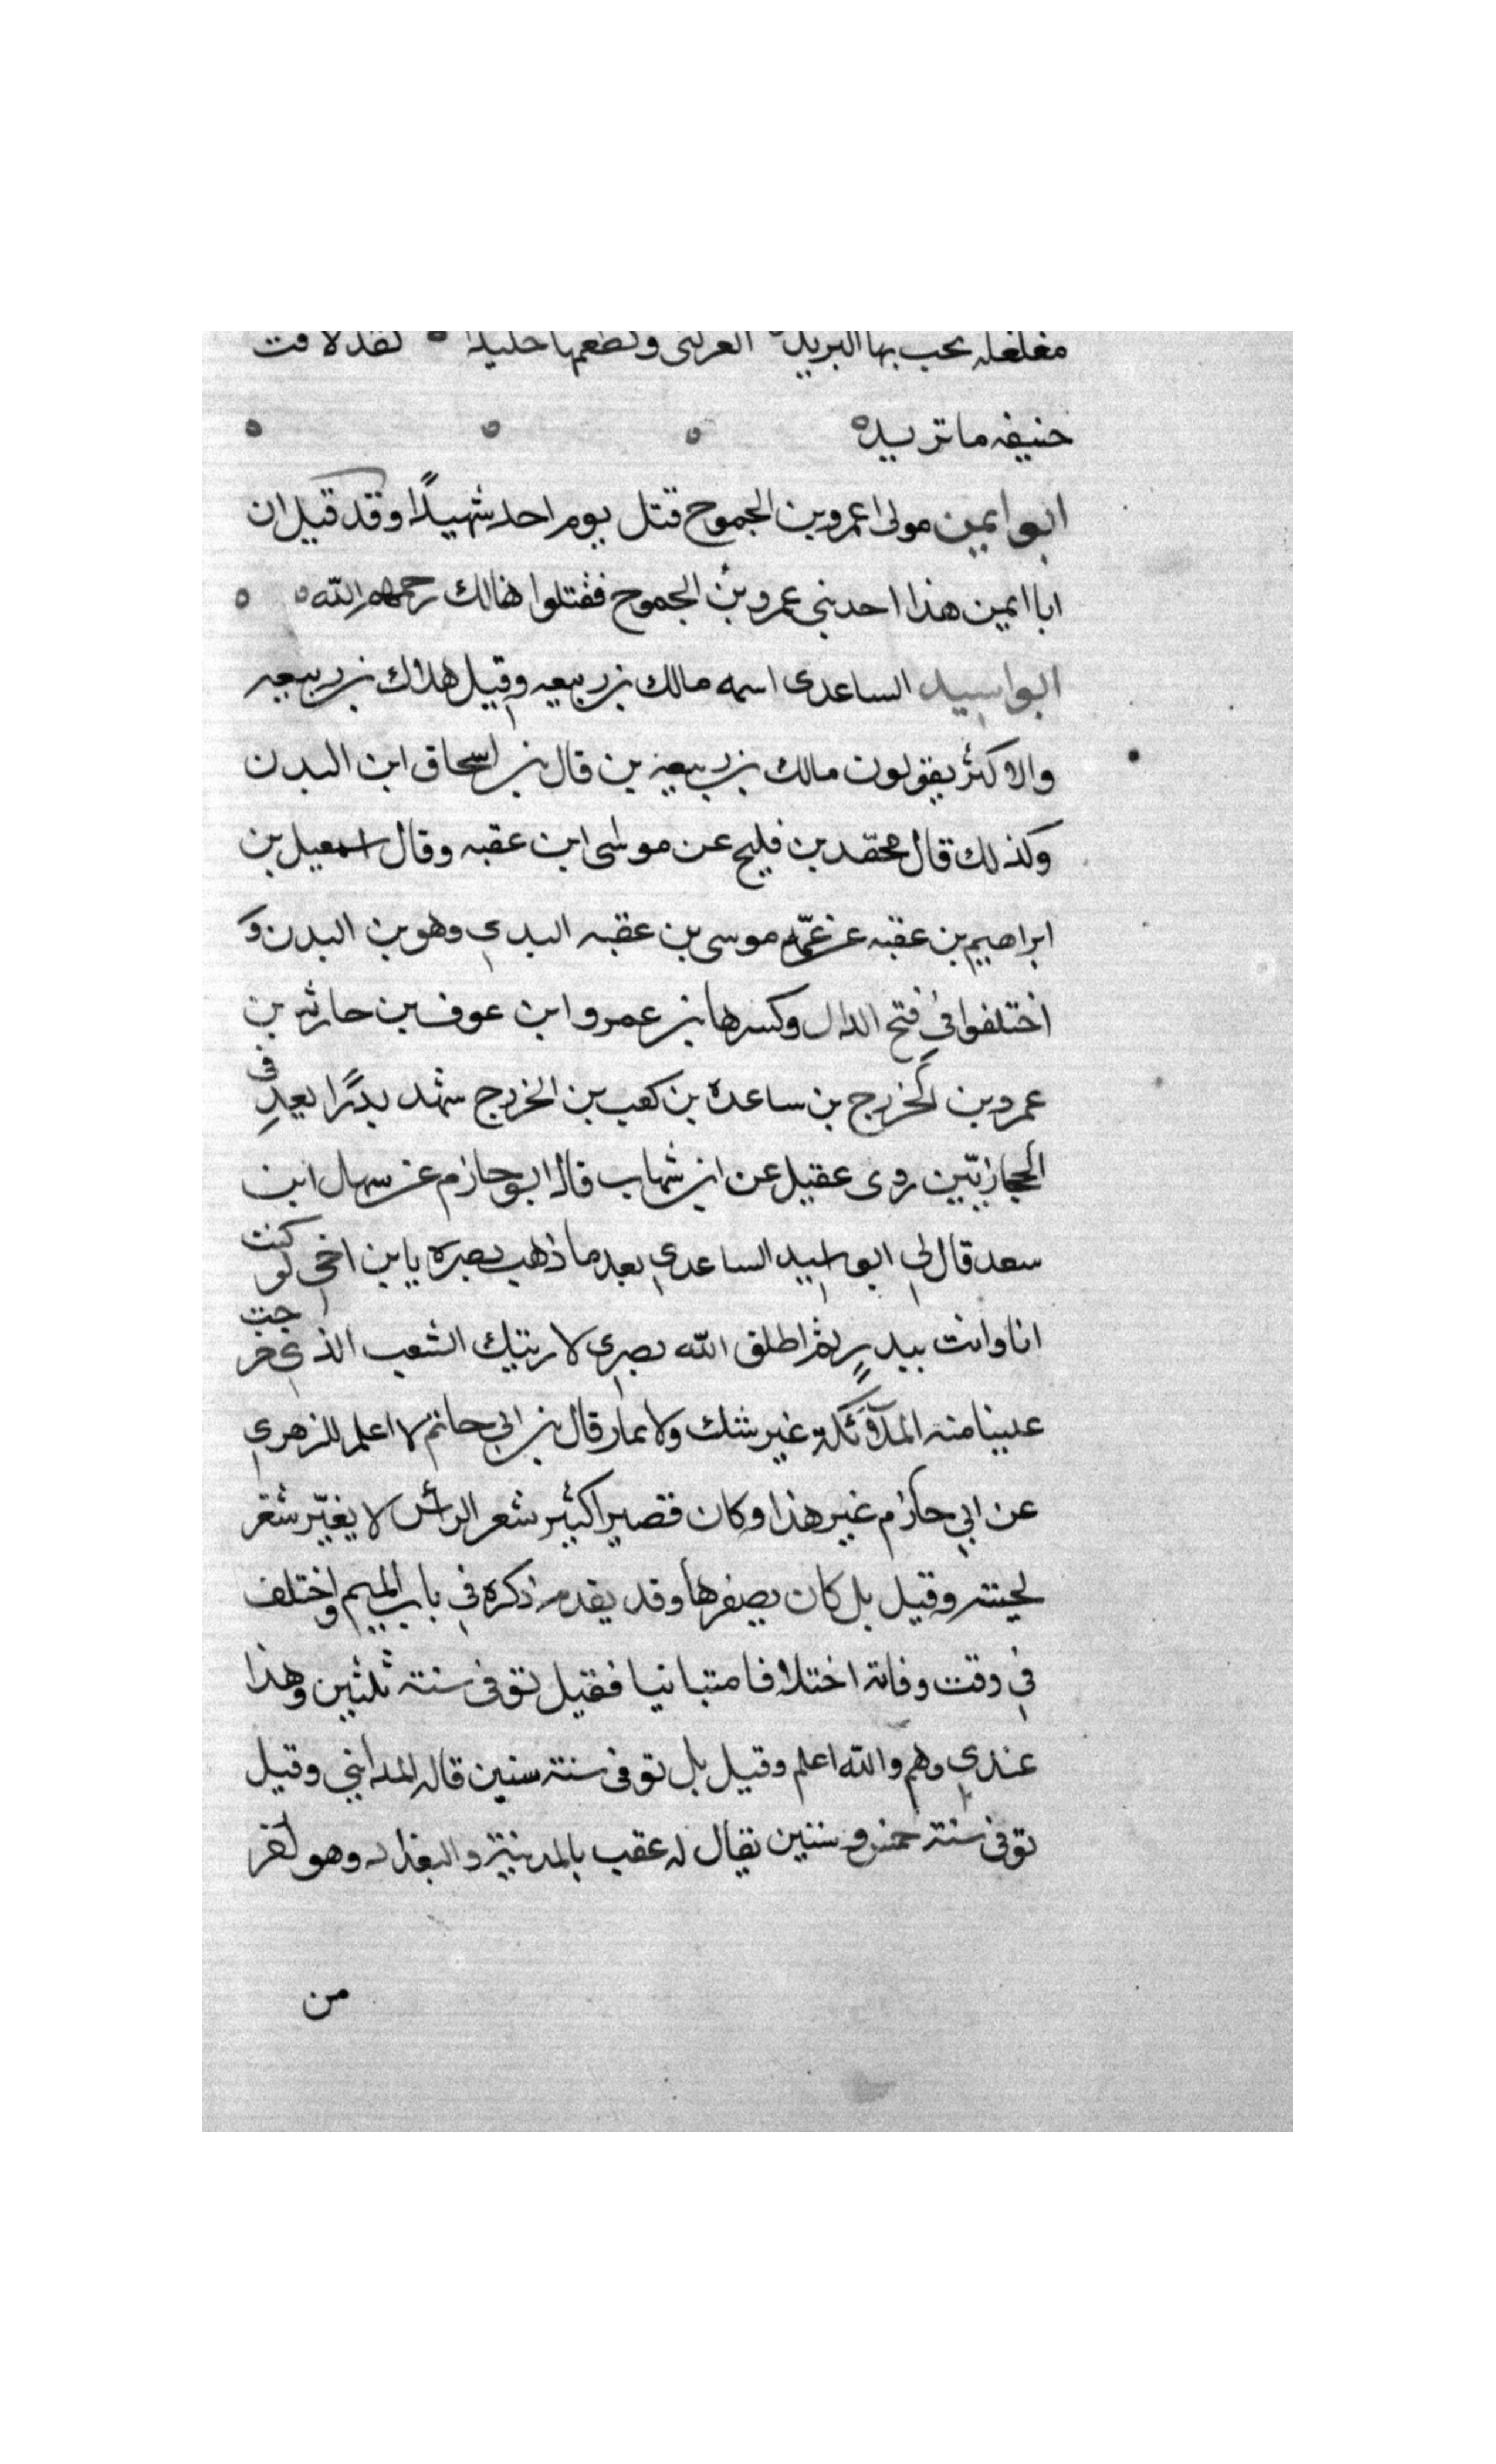 مغلغله يخب بها البريد لقد لاقت
حنيفه ما تريد
ابو ايمن مولى عمرو بن الجموح قتل يوم احد شهيدًا وقد قيل ان
ابا ايمن هذا احد بني عمرو بن الجموح فقتلوا هنالك رحمهم الله
ابو اسيد الساعدى اسمه مالك بن ربيعه وقيل هلال بن ربيعه
والاكثر يقولون مالك بن ربيعه بن قال بن اسحاق ابن البدن
وكذلك قال محمّد بن فليح عن موسى ابن عقبه وقال اسمعيل بن
ابراهيم بن عقبه عن عمّه موسى بن عقبه البدي وهو بن البدن و
اختلفوا في فتح الدال وكسرها بن عمرو ابن عوف بن حارثه بن
عمرو بن الخزرج بن ساعدة بن كعب بن الخزرج شهد بدرًا يعد في
الحجازيّين روى عقيل عن ابن شهاب قال ابو حازم عن سهل ابن
سعد قال لي ابو اسيد الساعدي بعد ما ذهب بصره يا بن اخي لو كنت
انا وانت ببدرٍ ثم اطلق الله بصري لاريتك الشعب الذي خرجت
علينا منه الملآئكة غير شك ولا تمار قال بن ابي حاتم لا اعلم للزهري
عن ابي حازم غير هذا وكان قصيرا كثير شعر الرأس لا يغيّر شعر
لحيته وقيل بل كان يصفرها وقد تقدم ذكره في باب الميم واختلف
في وقت وفاته اختلافا متباينا فقيل توفى سنة ثلثين وهذا
عندي وهم والله اعلم وقيل بل توفى سنة ستين قاله المدايني وقيل
توفى سنة خمس وستين يقال له عقب بالمدينة والبغداد وهو اخر
من